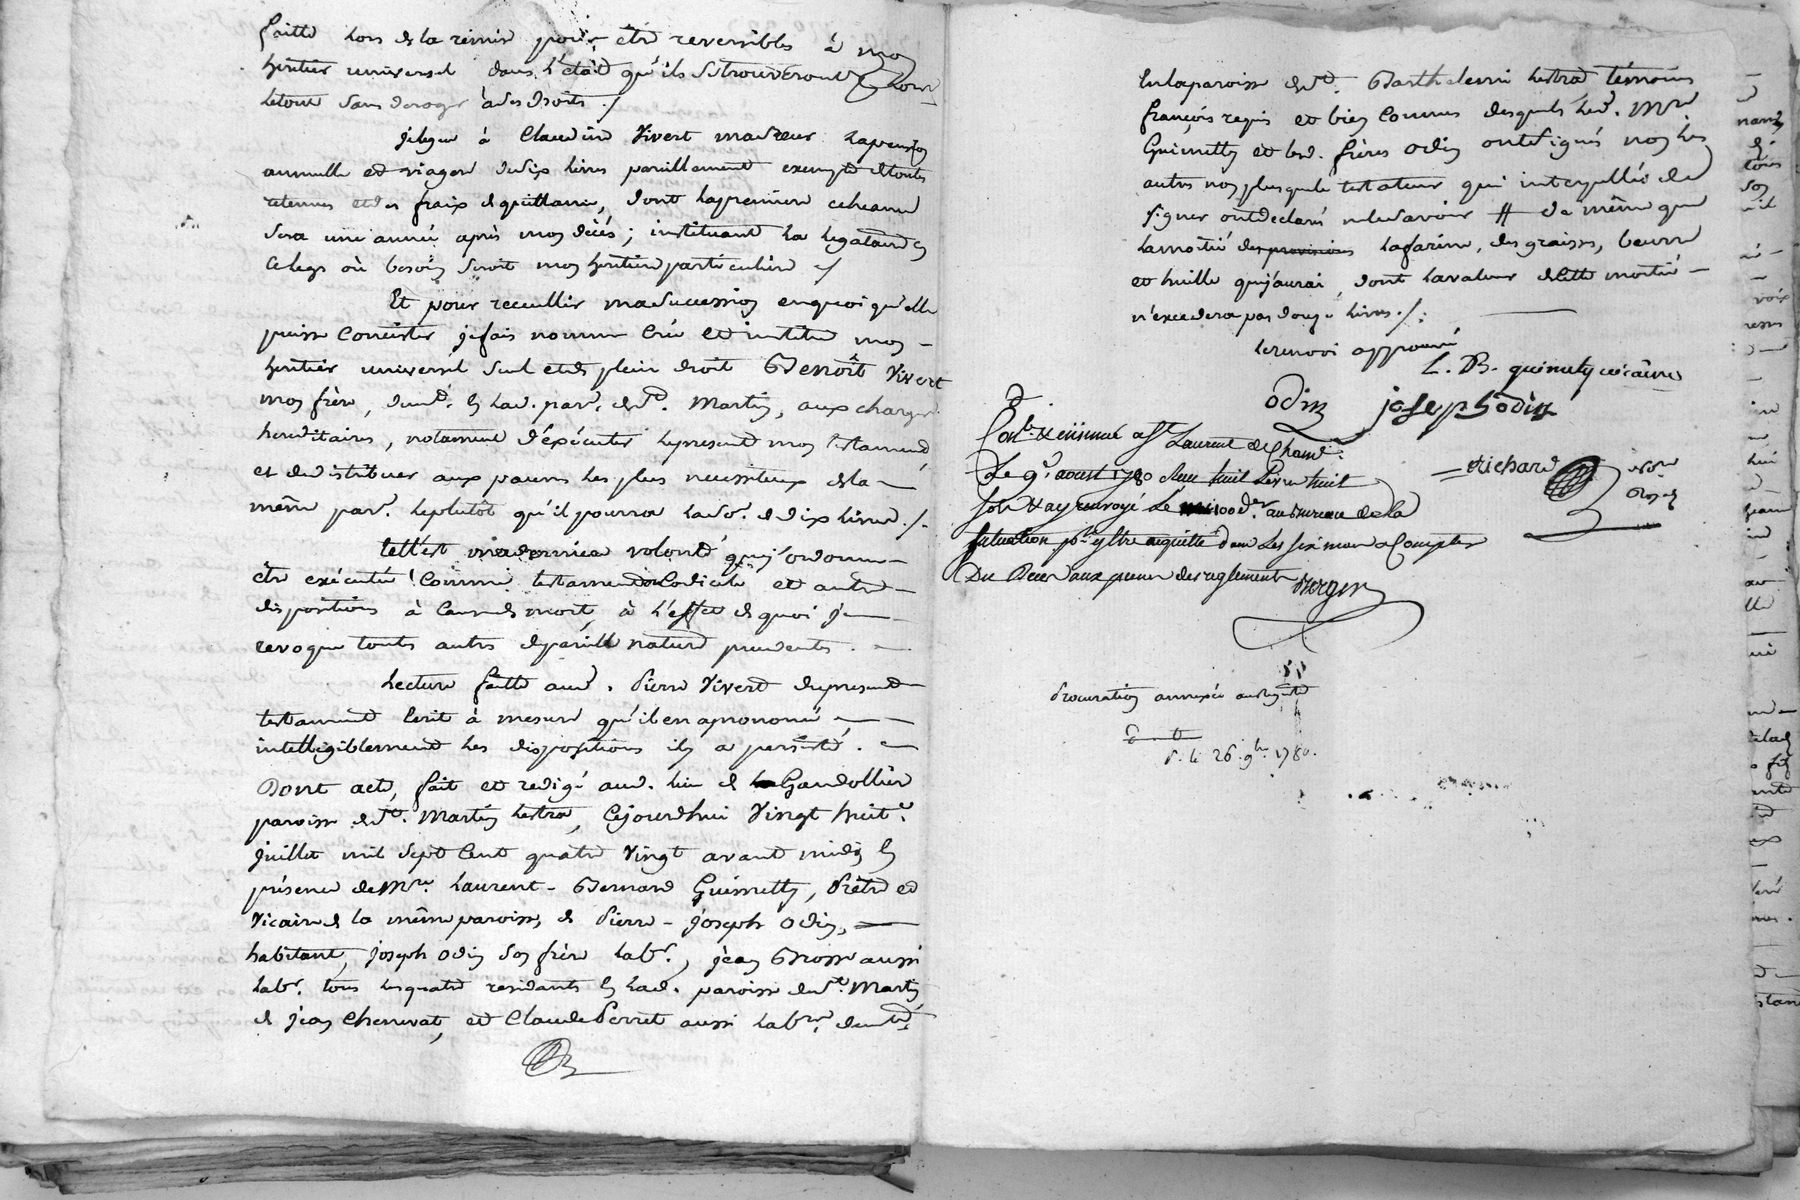 faitte hors de la remise pour être reversibles à mon
heritier universel dans l'état qu'ils se trouveront
le tout sans deroger à ses droits ./
je legue à Claudine Vivert ma soeur la pension
annuelle et viagere de dix livres pareillement exempte de toutes
retenues et des fraix de quittance, dont la premiere echeance
sera une année après mon décés; instituant la legataire en
ce legs où besoin seroit mon heritiere particuliere ./
Et pour recuellir ma succession en quoi qu'elle
puisse consister je fais nomme crée et institue mon
heritier universel seul et de plein droit Benoît Vivert
mon frère, dud. en lad. par. de St. Martin, aux charges
hereditaires, notament d'éxécuter le present mon testament,
et de distribuer aux pauvres les plus necessiteux de la
même par. le plutôt qu'il pourra la so. de dix livres ./.
tell'est ma derniere volonté que j'ordonne
etre exécutée comme testament codicile et autre
dispositions à cause de mort, à l'effet de quoi je
revoque toutes autres de pareille nature precedentes.
Lecture faitte aud. Pierre Vivert du present
testament ecrit à mesure qu'il en a prononcé
intelligiblement les dispositions il y a persisté.
Dont acte, fait et redigé aud. lieu de la Gandollière
paroisse de St. Martin Lestra, cejourdhui Vingt huit
juillet mil sept cent quatre Vingt avant midi en
présence de Mre. Laurent-Bernard Guimetty, Prêtre et
Vicaire de la même paroisse, de Pierre-joseph Odin,
habitant, joseph Odin son frère labr., jean Brosse aussi
labr. tous les quatre residants en lad. paroisse de St. Martin
de jean Chenevat, et Claude Perret aussi labrs. demts.
en la paroisse de St. Barthelemi Lestra témoins
françois requis et bien connus desquels led. Mre.
Guimetty et lesd. frères Odin ont signés non les
autres non plus que le testateur qui interpellés de
signer ont declaré ne le savoir # de même que
la moitié des provisions la farine, des graisses, beurre
et huille que j'aurai, dont la valeur de cette moitié
n'excedera pas douze livres ./.
le renvoi approuvé
L. B. guimety vicaire
Odin joseph odin
Richard nore
Royal
Conle. & insinué a St. Laurent de Cham.
Le 9e. aoust 1780 Reçu huit Livres huit
sols & ay renvoyé Le 100e. der. au bureau de la
situation pr. y être acquitté dans Les six mois a Compter
Du Deces aux peines des reglements Berger
Procuration annexée au
P. le 26. 9bre 1780.